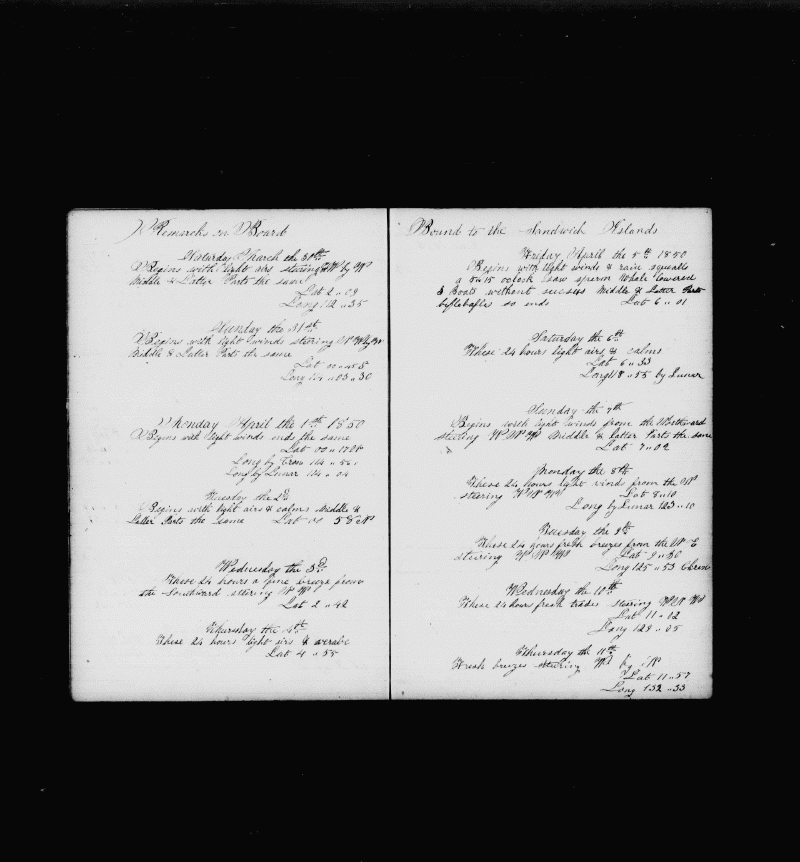 Remarks on Board
Saturday March the 30th
Begins with light airs steering by W
Middle & Latter Parts the same
Lat 2 " 09
Long 112 " 35
Sunday the 31st
Begins with light winds stering
Middle & Latter Parts the same
Lat 00 " 45 S
Long " 03 " 30
Monday April the 1st 1850
Begins with light winds ends the same
Lat 00 " 17 N
Long by Cron 114
Long by Lunar 114 " 04
Tuesday the 2d
Begins with light airs & calms Middle &
Latter Parts the same Lat 58 N
Wednesday the 3d
These 24 hours a fine breeze from
the Southward stering N W
Lat 2 " 42
Thursday the 4th
These 24 hours light airs &
Lat 4 " 55
Bound to the Sandwich Islands
Friday April the 5th 1850
Begins with light winds & rain squalls
a oclock saw sperm Whale lowered
3 Boats without sucsess Middle & Latter Parts
so ends Lat 6 " 01
Saturday the 6th
These 24 hours light airs & calms
Lat 6 " 33
Long 118 " 55 by Lunar
Sunday the 7th
Begins with light winds from the
steering W N W Middle & latter Parts the same
Lat 7 " 02
Monday the 8th
These 24 hours light winds from the N
steering W N W Lat 8 " 10
Long by Lunar 123 " 10
Tuesday the 9th
These 24 hours fresh breezes from the N E
steering W N W Lat 9 " 30
Long 125 " 53 Chron
Wednesday the 10th
These 24 hours fresh trades steering W N W
Lat 11 " 02
Long 129 " 05
Thursday the 11th
Fresh brezes steering W by N
Lat 11 " 57
Long 132 " 33